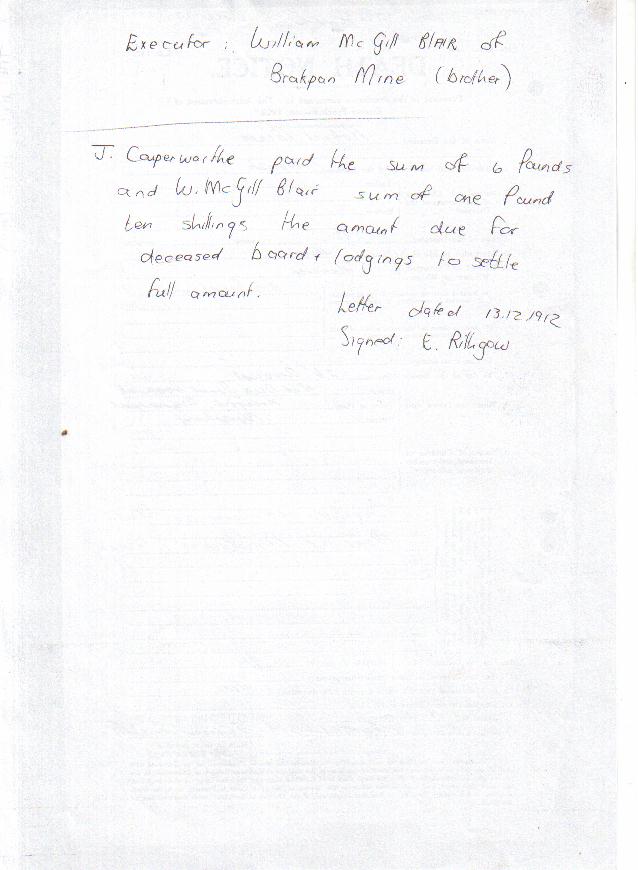 Executor : William Mc Gill BLAIR of
Brakpan Mine (brother)
J. Couperwaithe paid the sum of 6 Pounds
and W. McGill Blair sum of one Pound
ten shillings the amount due for
deceased board + lodgings to settle
full amount.
Letter dated 13.12.1912
Signed: E. Rithgow